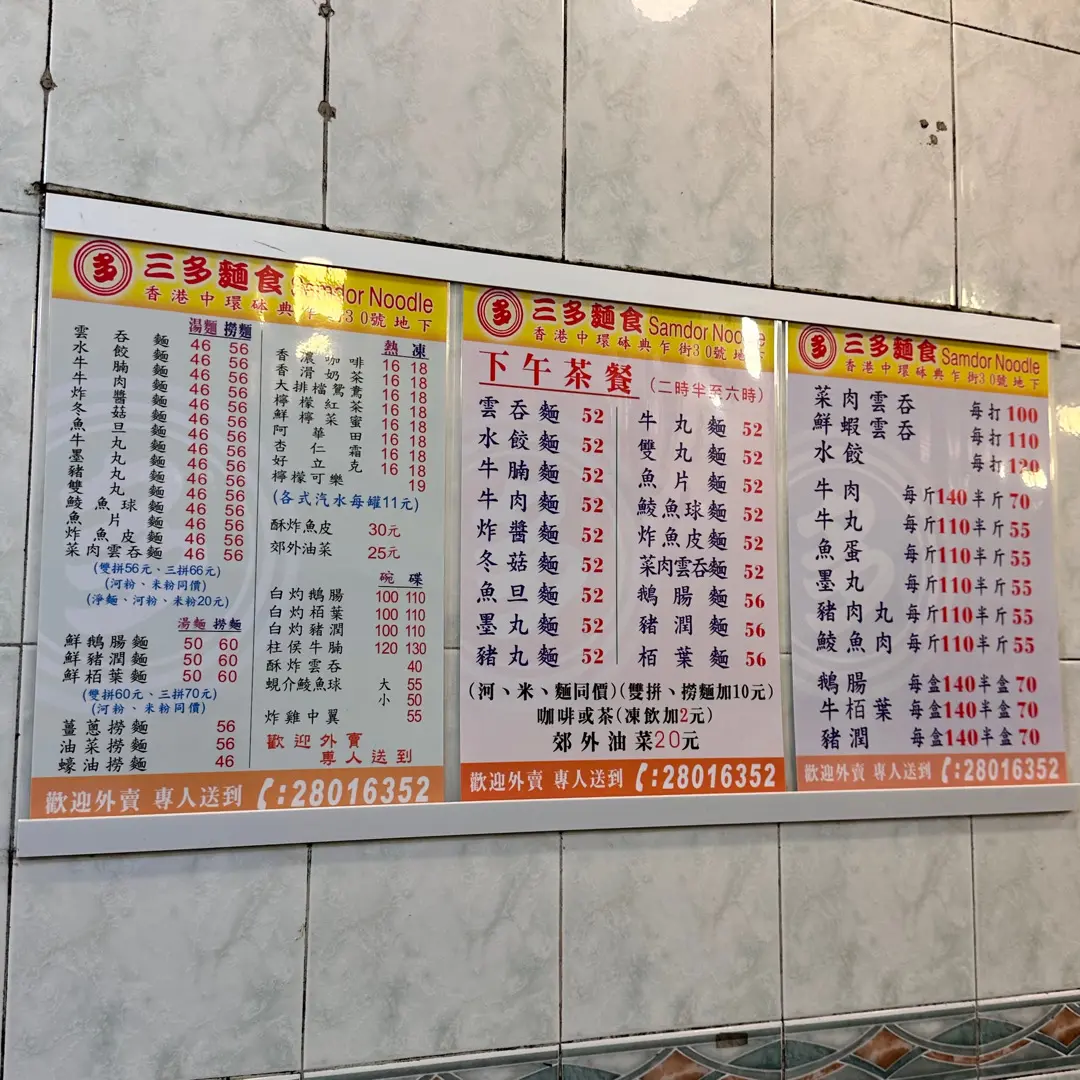 三多麵食 Samdor Noodle
香港中環砵典乍街30號地下
湯麵 撈麵
雲吞麵 46 56
水餃麵 46 56
牛腩麵 46 56
牛肉麵 46 56
炸醬麵 46 56
冬菇麵 46 56
魚旦麵 46 56
牛丸麵 46 56
墨丸麵 46 56
豬丸麵 46 56
雙丸麵 46 56
鯪魚球麵 46 56
魚片麵 46 56
炸魚皮麵 46 56
菜肉雲吞麵 46 56
(雙拼56元、三拼66元)
(河粉、米粉同價)
(淨麵、河粉、米粉20元)
湯麵 撈麵
鮮鵝腸麵 50 60
鮮豬潤麵 50 60
鮮栢葉麵 50 60
(雙拼60元、三拼70元)
(河粉、米粉同價)
薑蔥撈麵 56
油菜撈麵 56
蠔油撈麵 46
熱 凍
香濃咖啡 16 18
香滑奶茶 16 18
大排檔鴛鴦 16 18
檸檬紅茶 16 18
鮮檸菜蜜 16 18
阿華田 16 18
杏仁霜 16 18
好立克 16 18
檸檬可樂 19
(各式汽水每罐11元)
酥炸魚皮 30元
郊外油菜 25元
碗 碟
白灼鵝腸 100 110
白灼栢葉 100 110
白灼豬潤 100 110
柱侯牛腩 120 130
酥炸雲吞 40
蜆介鯪魚球 大 55
小 50
炸雞中翼 55
歡迎外賣
專人送到
歡迎外賣 專人送到 :28016352
三多麵食 Samdor Noodle
香港中環砵典乍街30號地下
下午茶餐 (二時半至六時)
雲吞麵 52
水餃麵 52
牛腩麵 52
牛肉麵 52
炸醬麵 52
冬菇麵 52
魚旦麵 52
墨丸麵 52
豬丸麵 52
牛丸麵 52
雙丸麵 52
魚片麵 52
鯪魚球麵 52
炸魚皮麵 52
菜肉雲吞麵 52
鵝腸麵 56
豬潤麵 56
栢葉麵 56
(河、米、麵同價)(雙拼、撈麵加10元)
咖啡或茶(凍飲加2元)
郊外油菜20元
歡迎外賣 專人送到 :28016352
三多麵食 Samdor Noodle
香港中環砵典乍街30號地下
菜肉雲吞 每打100
鮮蝦雲吞 每打110
水餃 每打120
牛肉 每斤140半斤70
牛丸 每斤110半斤55
魚蛋 每斤110半斤55
墨丸 每斤110半斤55
豬肉丸 每斤110半斤55
鯪魚肉 每斤110半斤55
鵝腸 每盒140半盒70
牛栢葉 每盒140半盒70
豬潤 每盒140半盒70
歡迎外賣 專人送到 :28016352